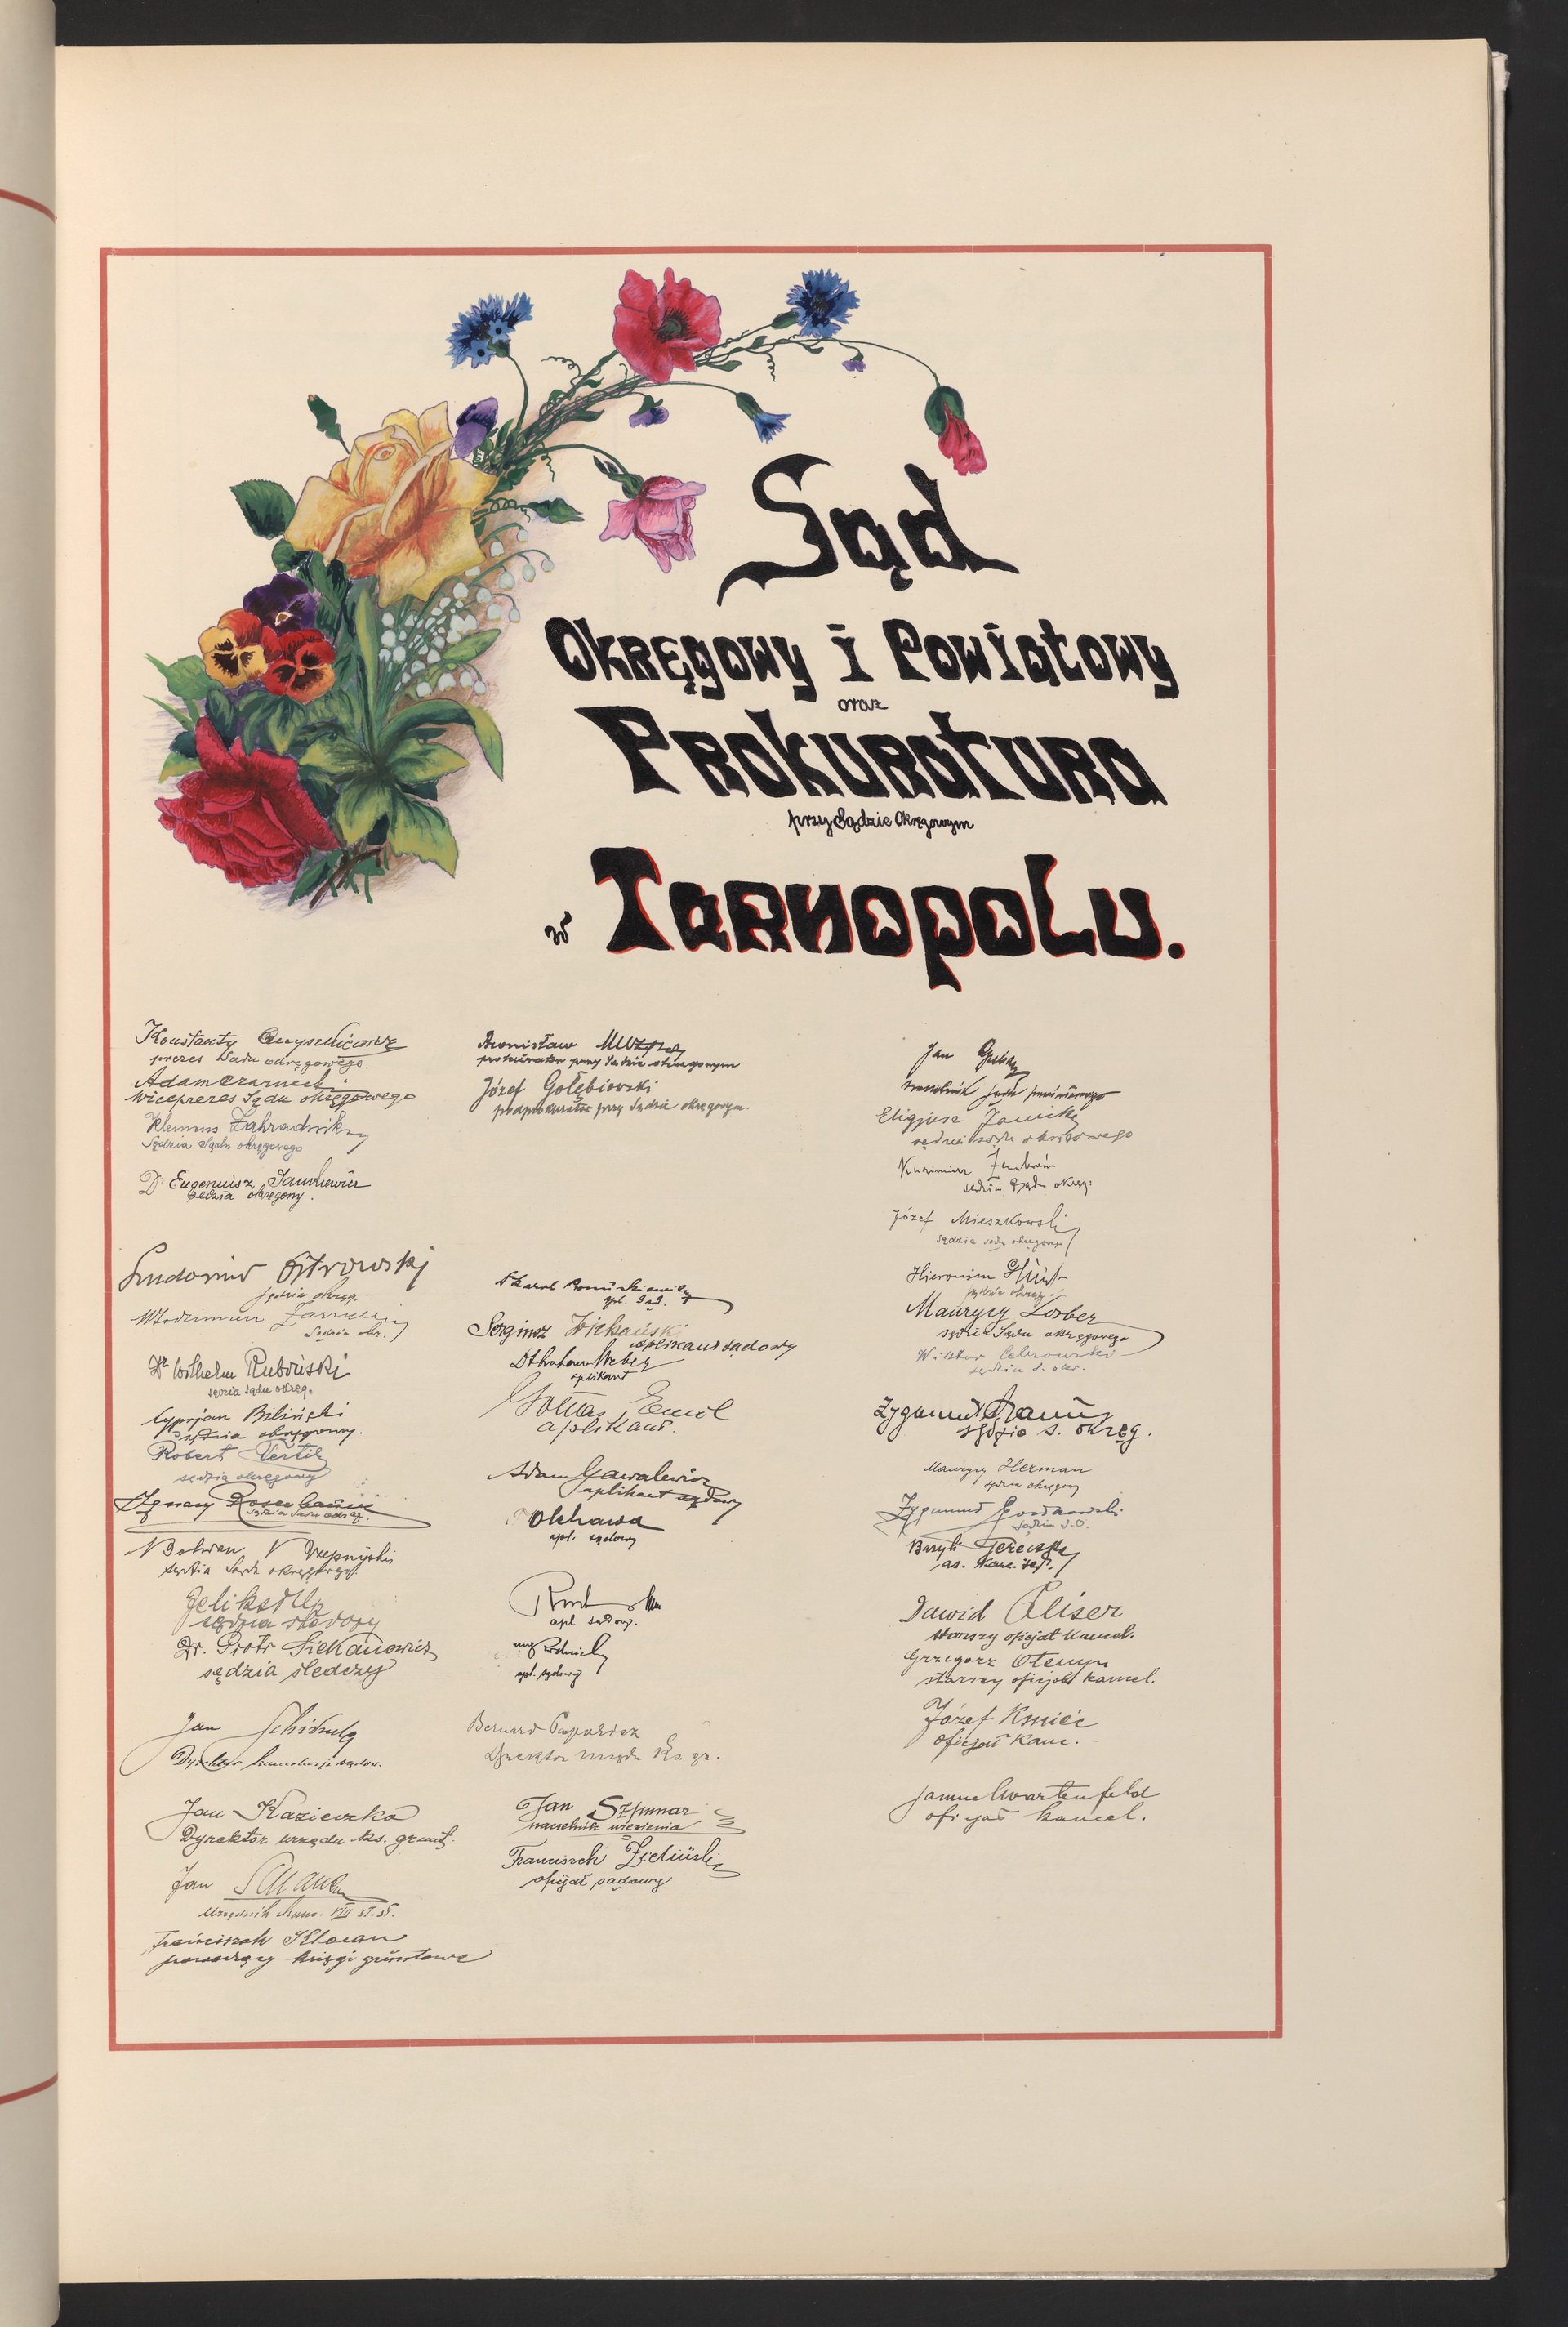 Sąd
Okręgowy i Powiatowy
oraz
Prokuratura
przy Sądzie Okręgowym
w Tarnopolu.
Konstanty
prezes Sądu okręgowego.
Adam Czarnecki
wiceprezes Sądu okręgowego
Klemens Zahradnik
Sędzia Sądu okręgowego
Dr Eugenuisz Jankiewicz
Sędzia okręgowy.
Ludomir Ostrowski
sędzia okręg.
Włodzimierz
Sędzia okr.
Dr Wilhelm Rubiński
sędzia sądu okręg.
Cyprjan Biliński
sędzia okręgowy.
Robert Pertil
sędzia okręgowy
Ignacy Rosenbaum
sędzia Sądu okręg.
Bohdan
Sędzia Sądu okręgowego
Feliks
sędzia śledczy
Dr. Piotr Siekanowicz
sędzia śledczy
Jan
Dyrektor kancelarji sądow.
Jan Kazieczka
Dyrektor urzędu ks. grunt.
Jan
Urzędnik kanc. VIII st. sł.
Franciszek Klocan
prowadzący księgi gruntowe
Bronisław
prokurator przy Sądzie okręgowym
Józef Gołębiowski
podprokurator przy Sądzie okręgowym.
Karol
apl. sąd.
Sergiusz
aplikant sądowy
Weber
aplikant
Emil
aplikant.
Adam Gawalewicz
aplikant sądowy
Okhawa
apl. sądowy
apl. sądowy.
apl. sądowy
Bernard
Dyrektor urzędu ks. gr.
Jan Szpunar
naczelnik więzienia
Franciszek Zieliński
oficjał sądowy
Jan
naczelnik sądu powiatowego
Eligjusz Janicki
sędzia sądu okręgowego
Kazimierz
sędzia Sądu okręg.
Józef Mieszkowski
sędzia sądu okręgowego
Hieronim
sędzia okręg.
Maurycy Lorber
sędzia Sądu okręgowego
Wiktor Cebrowski
sędzia s. okr.
Zygmunt
sędzia s. okręg.
Maurycy Herman
sędzia okręgowy
Zygmunt
sędzia S.O.
Bazyli
as. kanc. sąd.
Dawid Peliser
starszy oficjał kancel.
Grzegorz Otemyn
starszy oficjał kancel.
Józef Kmieć
oficjał kanc.
Samuel Wartenfeld
oficjał kancel.